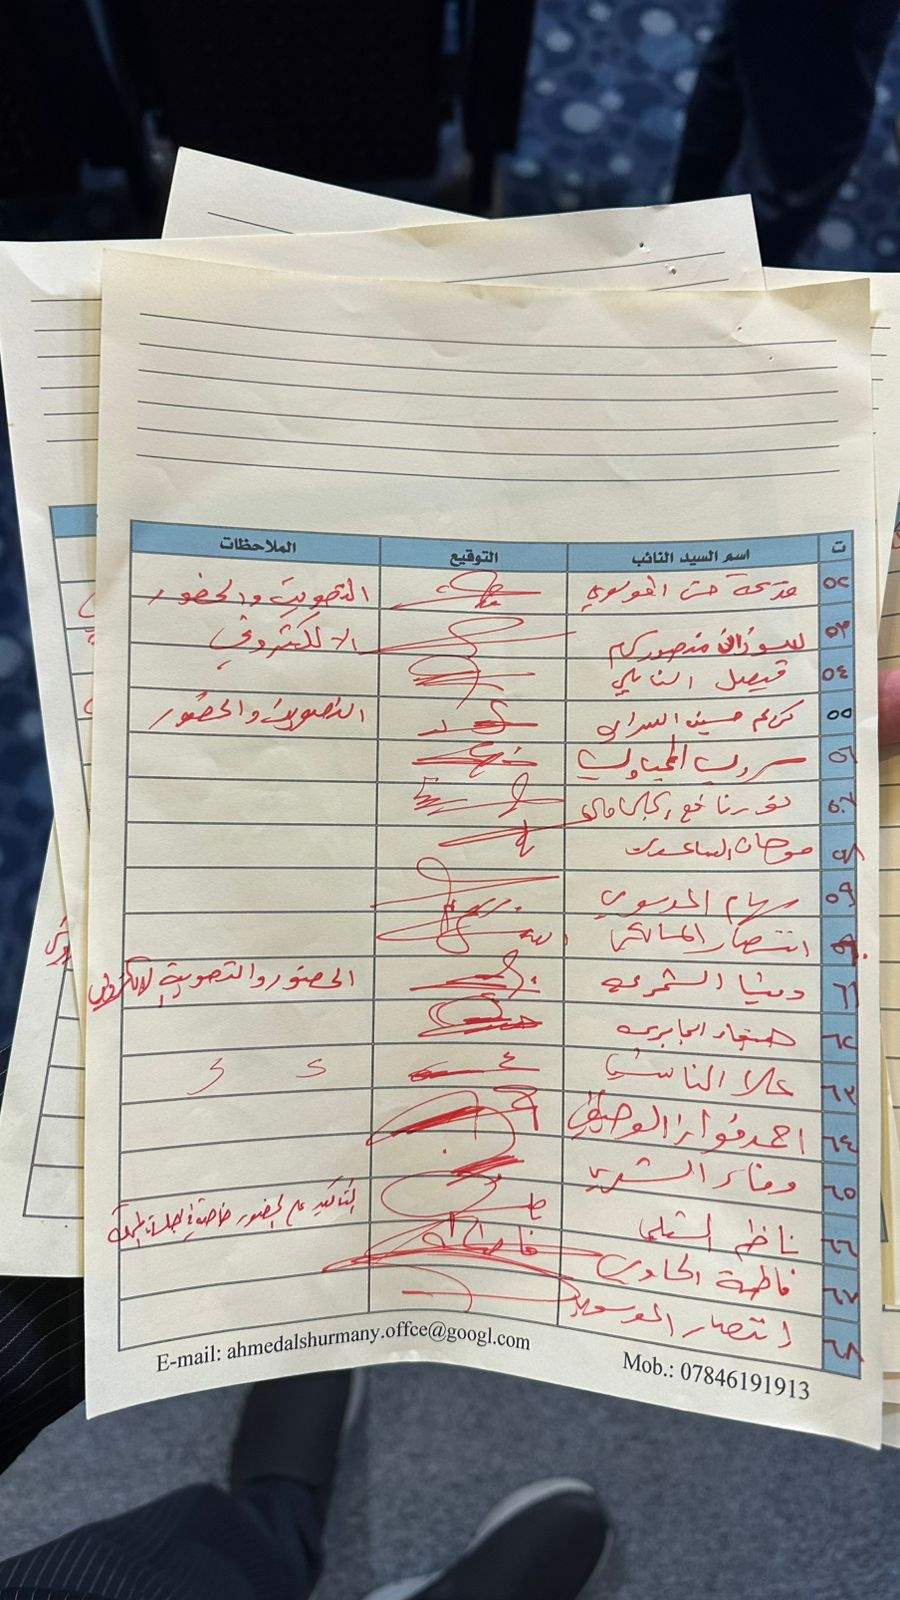 ت اسم السيد النائب التوقيع الملاحظات
٥٢ مديحة حسن الموسوي التصويت والحضور
٥٣ سوزان منصور كرم الالكتروني
٥٤ فيصل النائلي
٥٥ كريم حسين السراي التصويت والحضور
٥٦ سروب
٥٧ نور نافع
٥٨ موحان الساعدي
٥٩ سهام الموسوي
انتصار المالكي
٦١ دنيا الشمري الحضور والتصويت الالكتروني
٦٢ الجابري
٦٣ علا الناشي
٦٤ احمد فواز الوطيفي
٦٥ وفاء الشمري
٦٦ ناظم الشبلي التأكيد على الحضور خاصة في
٦٧ فاطمة
٦٨ انتصار الموسوي
E-mail: ahmedalshurmany.offce@googl.com
Mob.: 07846191913